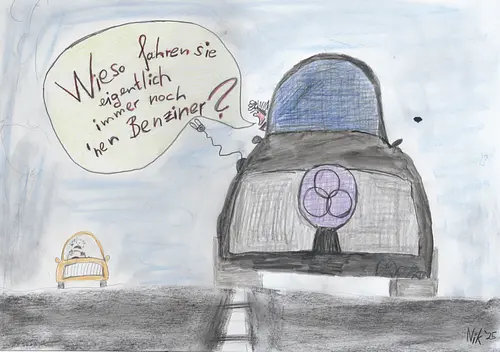 Wieso fahren sie
eigentlich
immer noch
'nen Benziner?
Nik '25